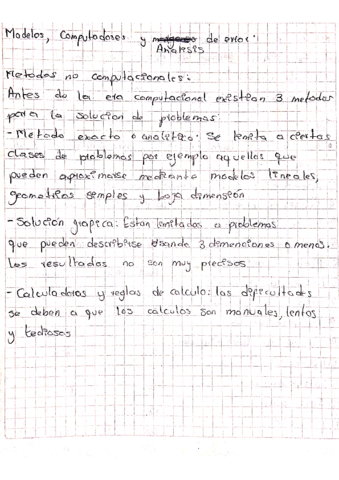 Modelos, Computadores y Analisis de error:
Metodos no computacionales:
Antes de la era computacional existian 3 metodos
para la solucion de problemas
- Metodo exacto o analitico: Se limita a ciertas
clases de problemas por ejemplo aquellos que
pueden aproximarse mediante modelos lineales,
geometrias simples y baja dimensión
- Solución grafica: Estan limitados a problemas
que pueden describirse usando 3 dimenciones o menos.
Los resultados no son muy precisos
- Calculadoras y reglas de calculo: las dificultades
se deben a que los calculos son manuales, lentos
y tediosos